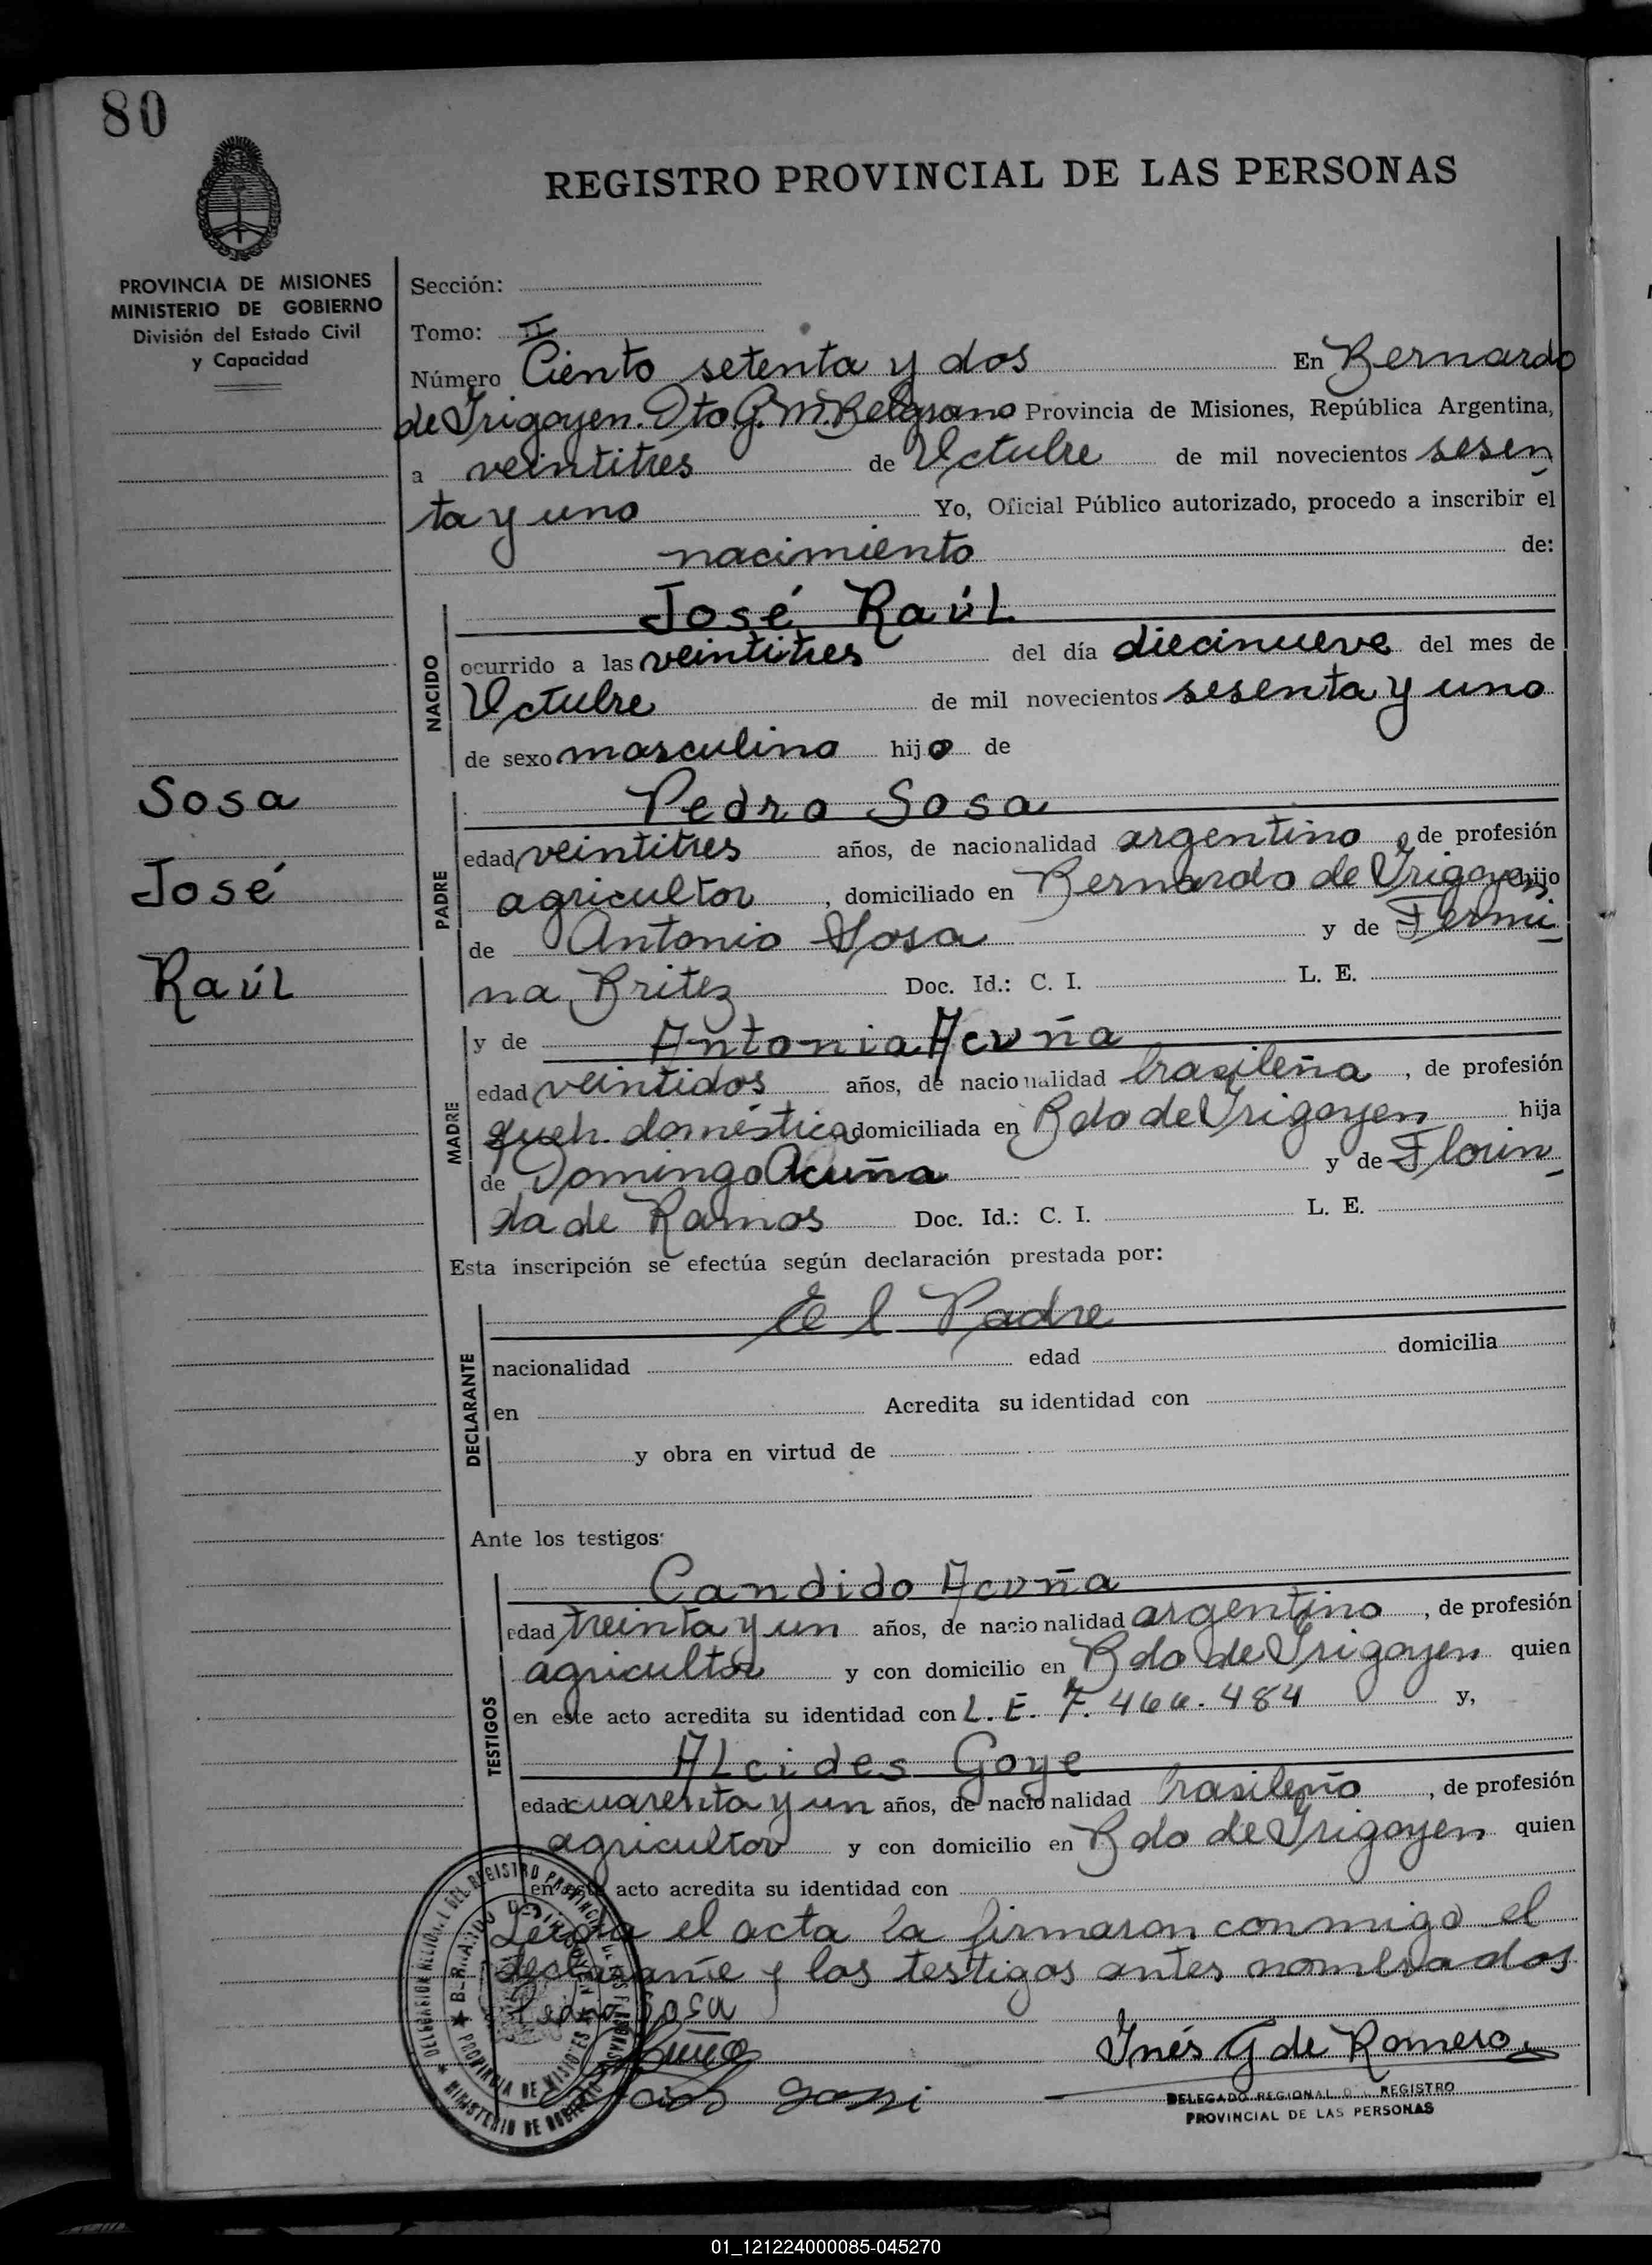 80
REGISTRO PROVINCIAL DE LAS PERSONAS
PROVINCIA DE MISIONES
MINISTERIO DE GOBIERNO
División del Estado Civil
y Capacidad
Sección:
Tomo: II
Número Ciento setenta y dos En Bernardo
de Irigoyen. Dto G. M. Belgrano Provincia de Misiones, República Argentina,
a veintitres de Octubre de mil novecientos sesen
ta y uno Yo, Oficial Público autorizado, procedo a inscribir el
nacimiento de:
NACIDO
José Raúl
ocurrido a las veintitres del día diecinueve del mes de
Octubre de mil novecientos sesenta y uno
de sexo masculino hijo de
Sosa
José
Raúl
PADRE
Pedro Sosa
edad veintitres años, de nacionalidad argentino, de profesión
agricultor, domiciliado en Bernardo de Irigoyen hijo
de Antonio Sosa y de Fermi
na Britez Doc. Id.: C. I. L. E.
MADRE
y de Antonia Acuña
edad veintidos años, de nacionalidad brasileña, de profesión
queh. doméstica domiciliada en Bdo de Irigoyen hija
de Domingo Acuña y de Florin
da de Ramos Doc. Id.: C. I. L. E.
Esta inscripción se efectúa según declaración prestada por:
DECLARANTE
El Padre
nacionalidad edad domicilia
en Acredita su identidad con
y obra en virtud de
Ante los testigos:
TESTIGOS
Candido Acuña
edad treinta y un años, de nacionalidad argentino, de profesión
agricultor y con domicilio en Bdo de Irigoyen quien
en este acto acredita su identidad con L. E. 7.466.484 y,
ALcides Goye
edad cuarenta y un años, de nacionalidad brasileño, de profesión
agricultor y con domicilio en Bdo de Irigoyen quien
en este acto acredita su identidad con
Leida el acta la firmaron conmigo el
declarante y los testigos antes nombrados
Pedro Sosa
Inés G de Romero
DELEGADO REGIONAL REGISTRO
PROVINCIAL DE LAS PERSONAS
PROVINCIA DE MISIONES
MINISTERIO DE GOBIERNO
01_121224000085-045270